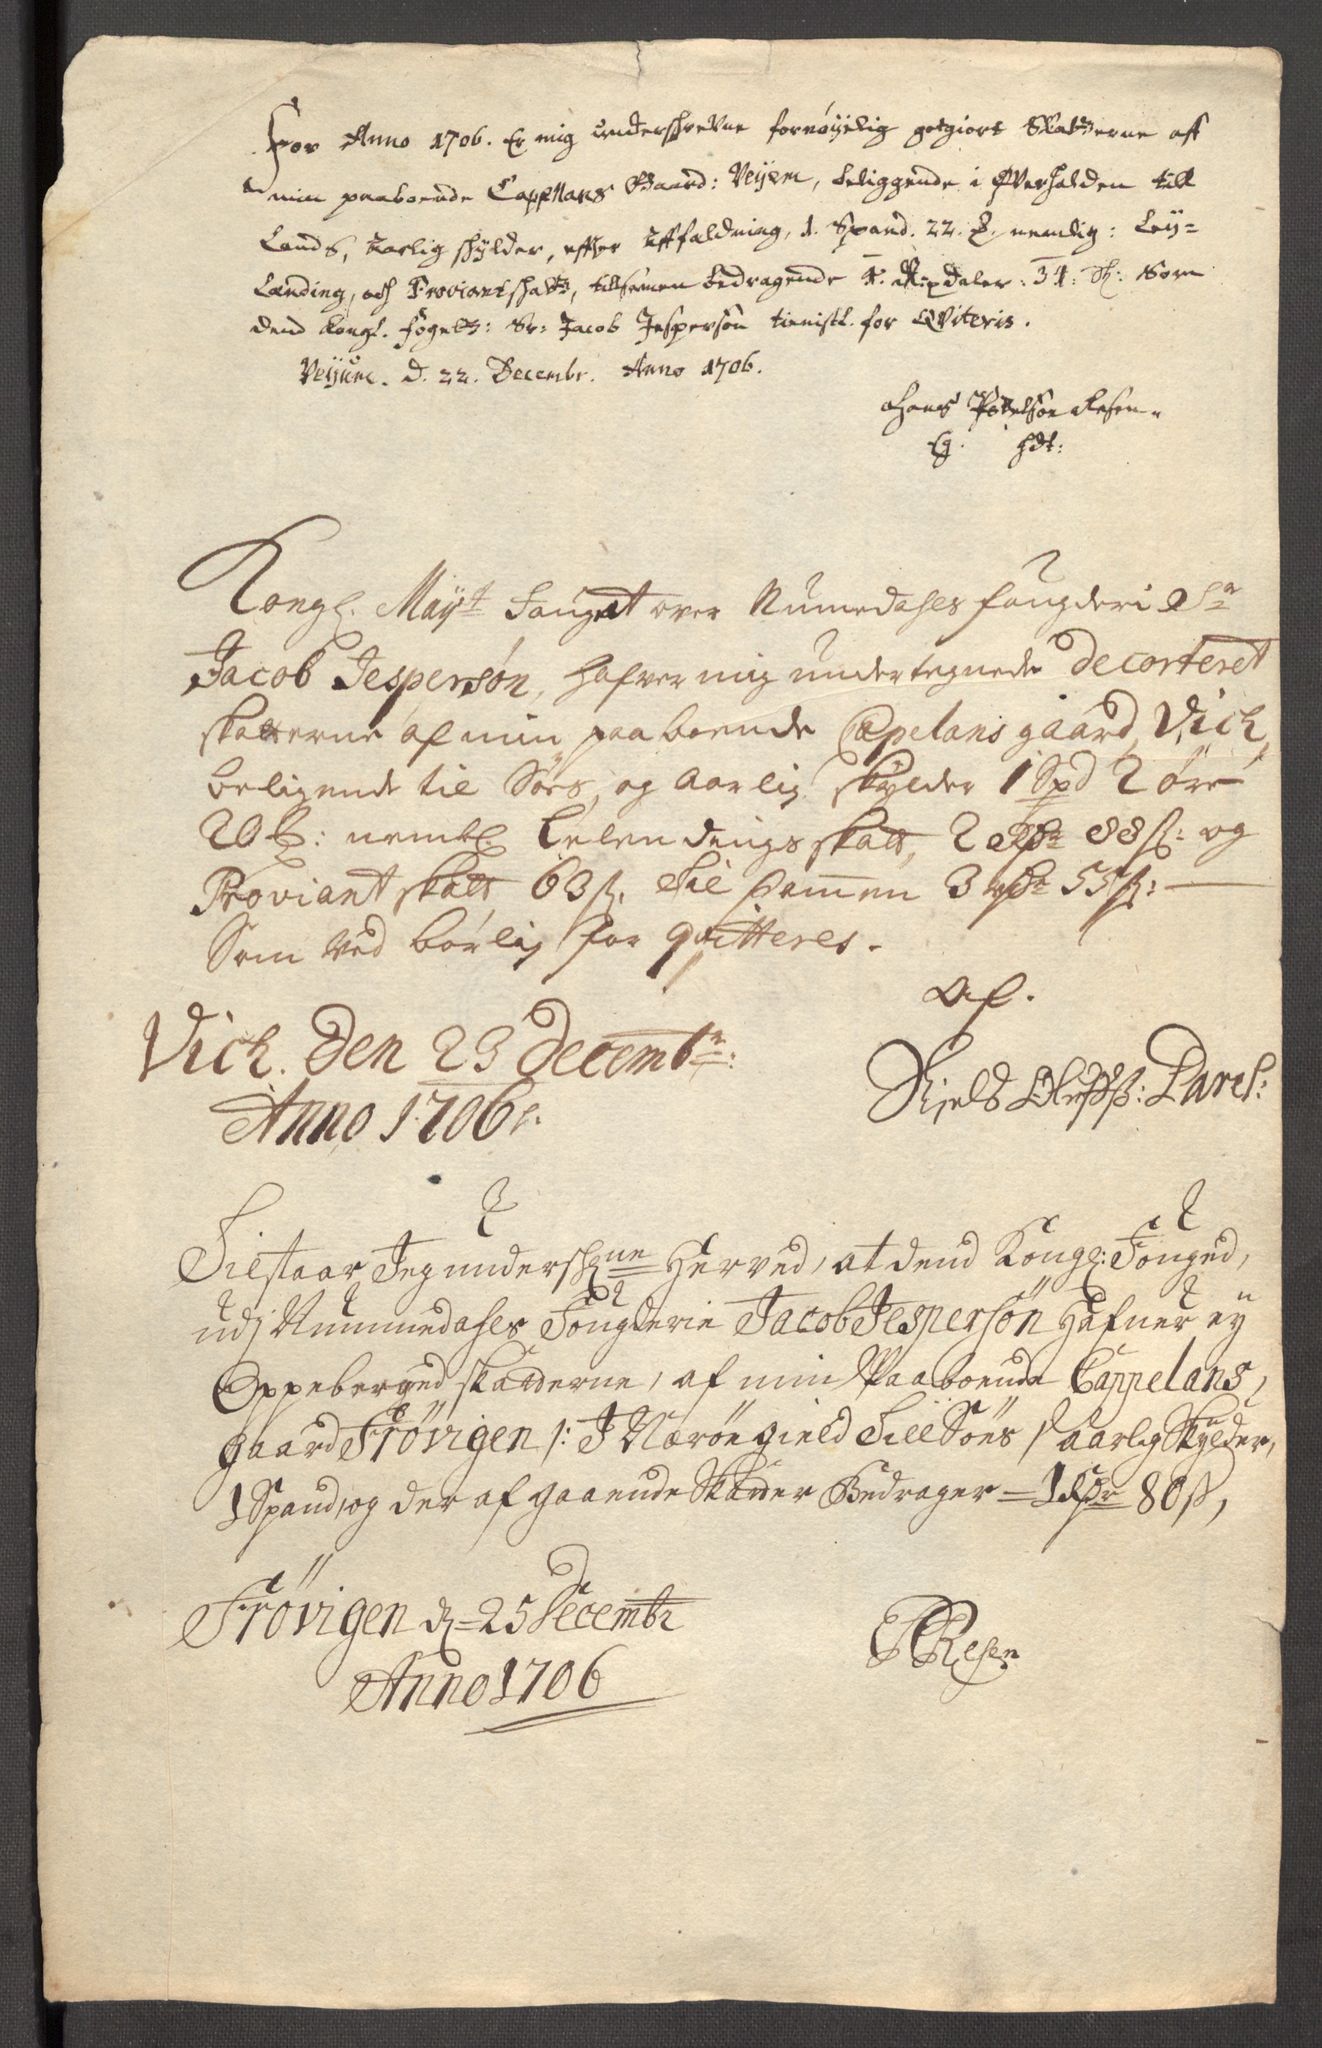 For Anno 1706. Er mig underschrevne fornøyelig gotgiort Skatterne aff
min paaboende Capellans Gaard: Veyem, beliggende i Øverhalden till
Lands, aarlig schylder, efter affældning, 1. Spand. 22. nemlig: Ley-
Lænding, och Proviantschatt, tillsamen bedragende 4. Rixdaler: 34: ß: Som
dend Kongl. Fogett: Sr: Jacob Jespersøn tienistl. for Qviteris.
Veyem. d. 22. Decembr. Anno 1706.
Hans Resen
Eg. hdt:
Kongl. Mayt Fauget over Numedahls faugderi Sr
Jacob Jespersøn, hafver mig undertegnede decorteret
skatterne af min paaboende Capelans gaard, Vich,
beligende til Søes, og aarlig skylder 1 Spd 2 øre
20 : nembl. Lelendings skatt, 2 rdr 88 ß: og
Proviant skatt 63 ß. til sammen 3 rdr 55 ß:
Som ved børlig for qvitteres.
Af.
Vich. den 23 decembr:
Niels Parel:
Anno 1706.
Tilstaar Jeg underschne Herved, at dend Kongl: Fouged,
udj Nummedahls Fougderie Jacob Jespersøn Hafuer ey
Oppeberged skatterne, af min Paaboende Cappelans,
gaard Frøvigen /: J Nærøe gield Till Søes / aarlig Skylder,
1 Spand, og der af gaaende Skatter Bedrager = 1 rdr 80 ß,
Frøvigen d = 25 Decembr
Resen
Anno 1706